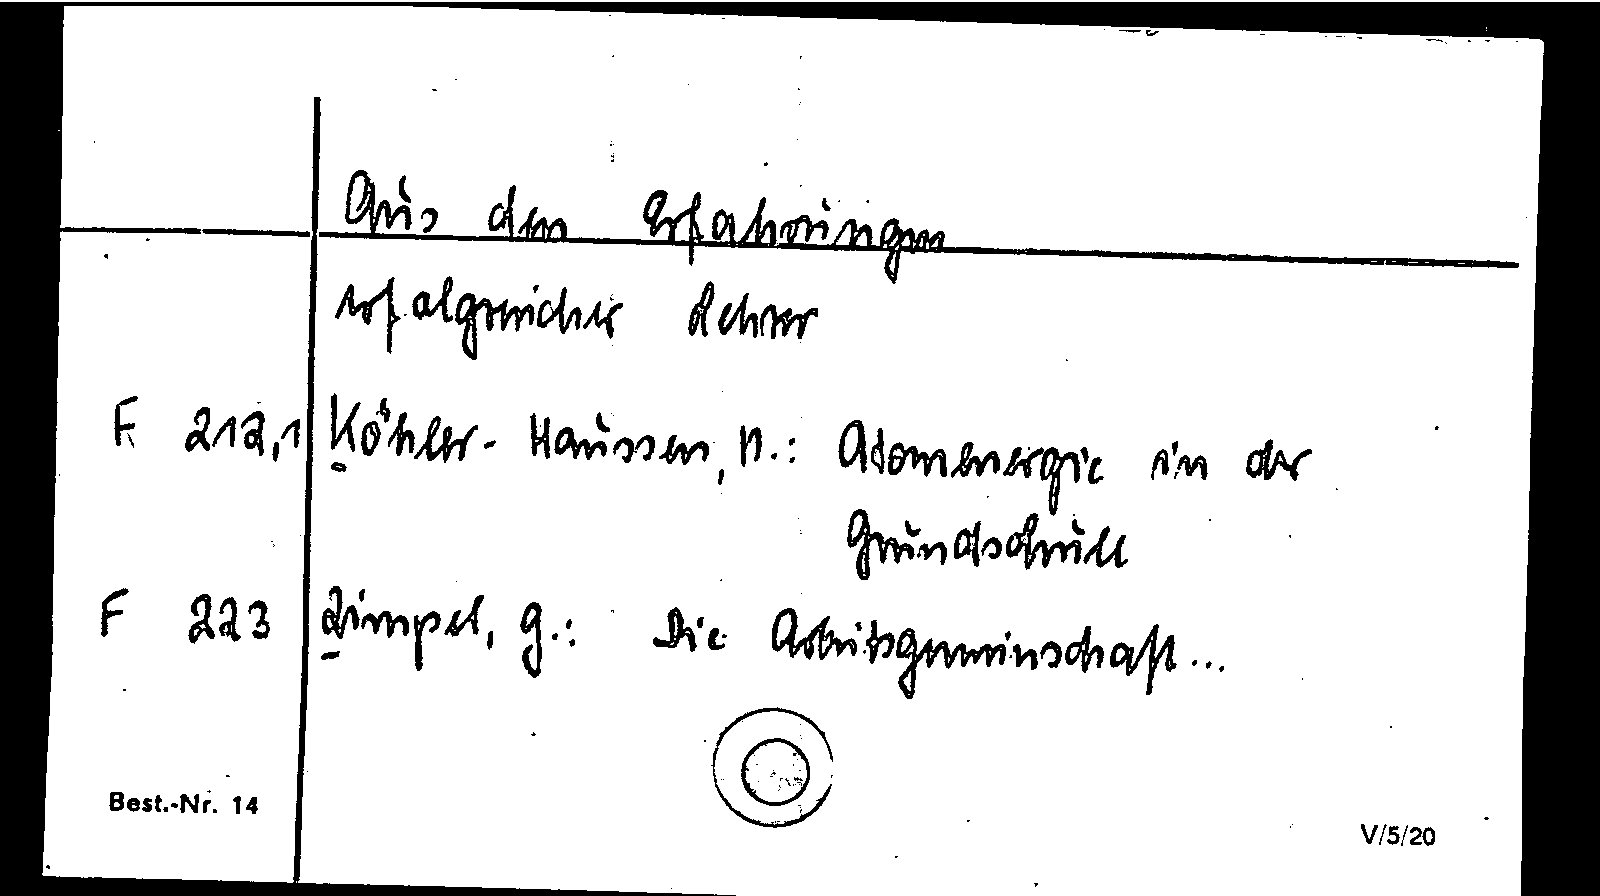 Aus den Erfahrungen
erfolgreicher Lehrer
F 212,1 Köhler-Haussen, N.: Atomenergie in der
Grundschule
F 223 Zimpel, G.: Die Arbeitsgemeinschaft...
Best.-Nr. 14
V/5/20